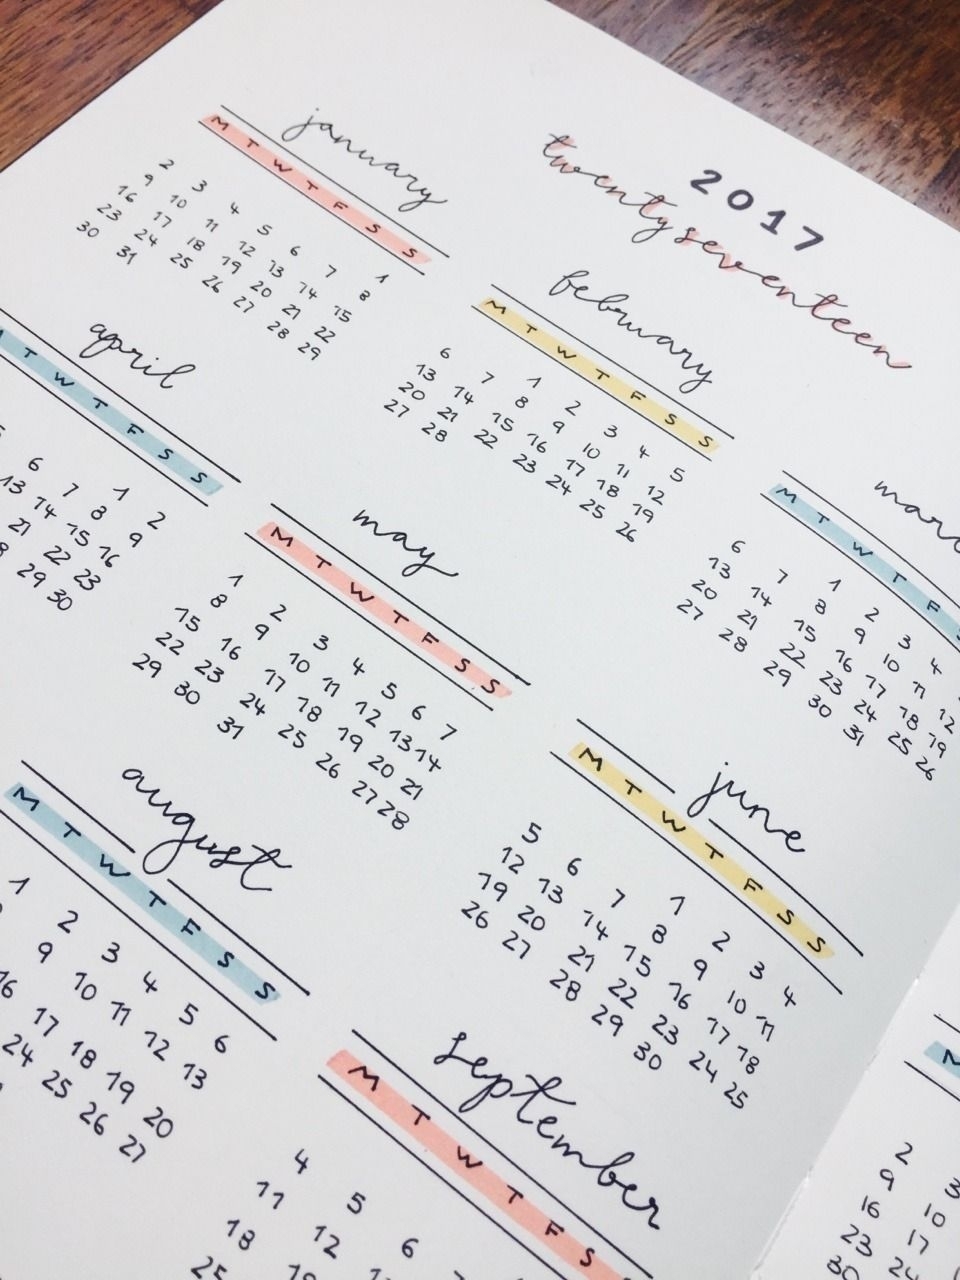 2017
twenty seventeen
january
M T W T F S S
1
2 3 4 5 6 7 8
9 10 11 12 13 14 15
16 17 18 19 20 21 22
23 24 25 26 27 28 29
30 31
february
M T W T F S S
1 2 3 4 5
6 7 8 9 10 11 12
13 14 15 16 17 18 19
20 21 22 23 24 25 26
27 28
marc
M T W T F S
1 2 3 4
6 7 8 9 10 11 12
13 14 15 16 17 18 19
20 21 22 23 24 25 26
27 28 29 30 31
april
M T W T F S S
1 2
6 7 8 9
13 14 15 16
21 22 23
29 30
may
M T W T F S S
1 2 3 4 5 6 7
8 9 10 11 12 13 14
15 16 17 18 19 20 21
22 23 24 25 26 27 28
29 30 31
june
M T W T F S S
1 2 3 4
5 6 7 8 9 10 11
12 13 14 15 16 17 18
19 20 21 22 23 24 25
26 27 28 29 30
august
M T W T F S S
1 2 3 4 5 6
9 10 11 12 13
16 17 18 19 20
24 25 26 27
september
M T W T F S
4 5 6
11 12
18
25
M
2 3
9 10
16 17
23 24
30